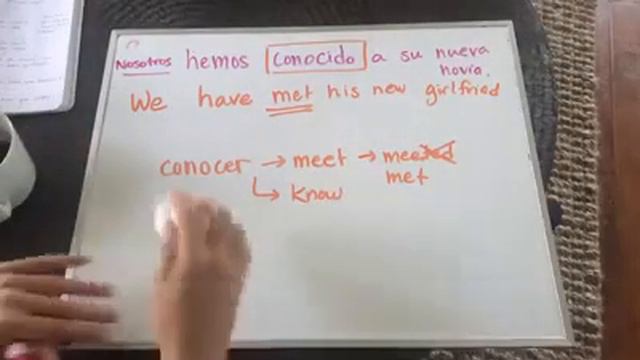 Nosotros hemos conocido a su nueva
novia.
We have met his new girlfried
conocer → meet → meeted
met
↳ know